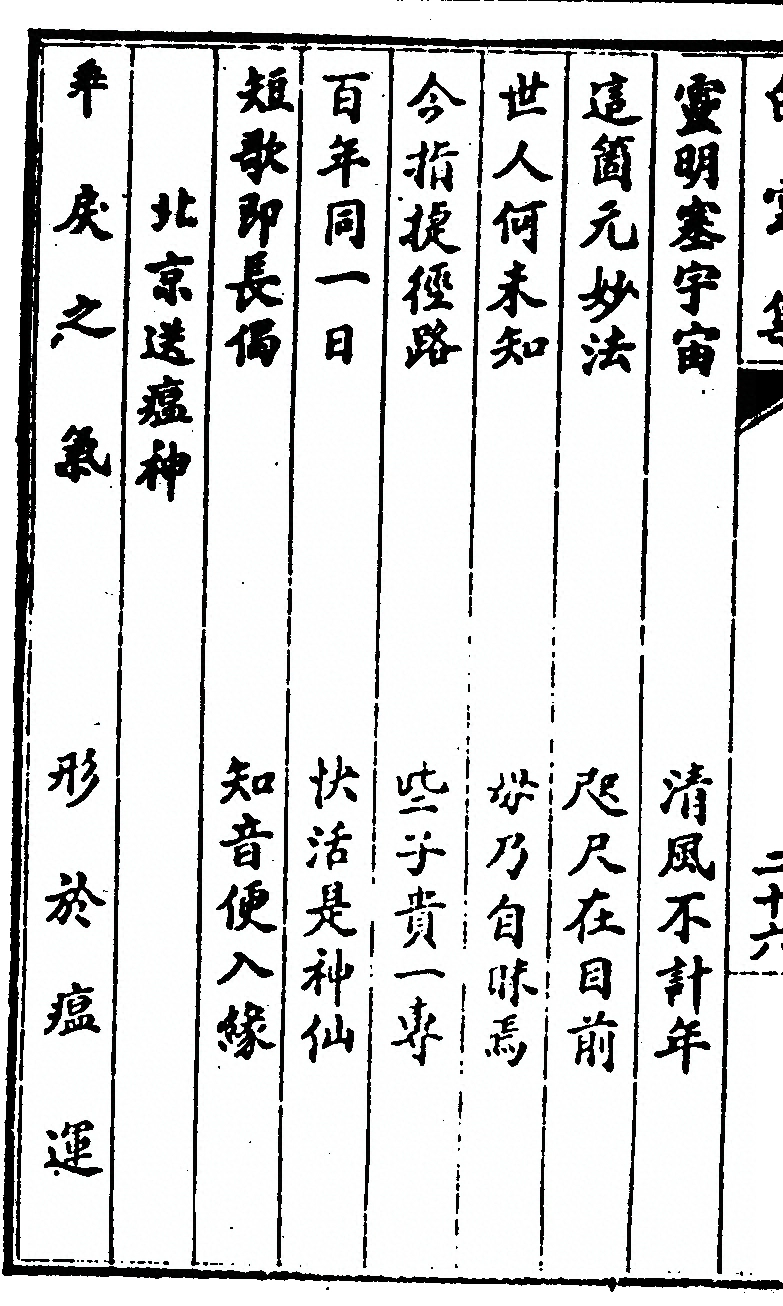 靈明塞宇宙 清風不計年
這箇元妙法 咫尺在目前
世人何未知 毋乃自昧焉
今指捷徑路 些子貴一專
百年同一日 快活是神仙
短歌即長偈 知音便入緣
北京送瘟神
戾之氣 形於瘟運
二十六